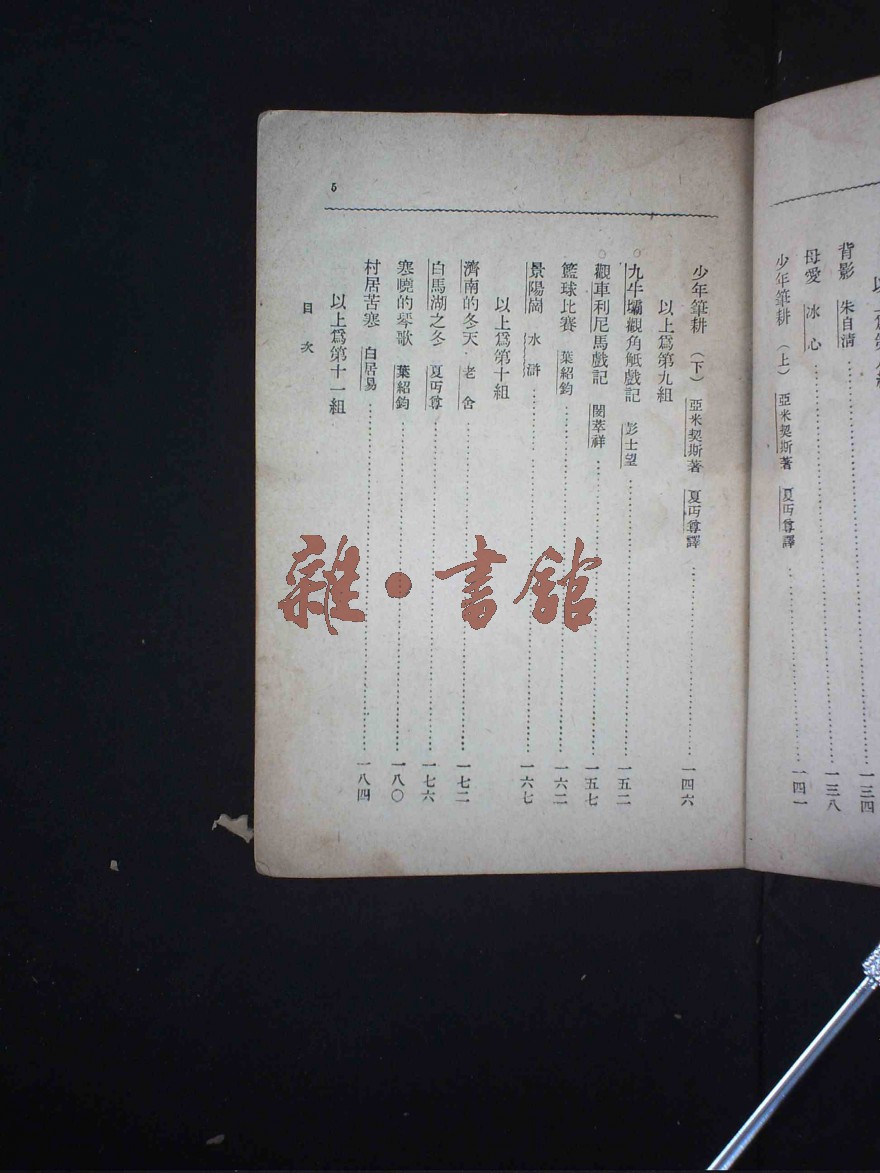 背影 朱自清 一三四
母愛 冰心 一三八
少年筆耕 (上) 亞米契斯著 夏丏尊譯 一四一
5
少年筆耕 (下) 亞米契斯著 夏丏尊譯 一四六
以上爲第九組
○九牛壩觀角觝戲記 彭士望 一五二
○觀車利尼馬戲記 闕萃祥 一五七
籃球比賽 葉紹鈞 一六二
景陽崗 水滸 一六七
以上爲第十組
濟南的冬天 老舍 一七二
白馬湖之冬 夏丏尊 一七六
寒曉的琴歌 葉紹鈞 一八〇
村居苦寒 白居易 一八四
以上爲第十一組
目次
雜·書館